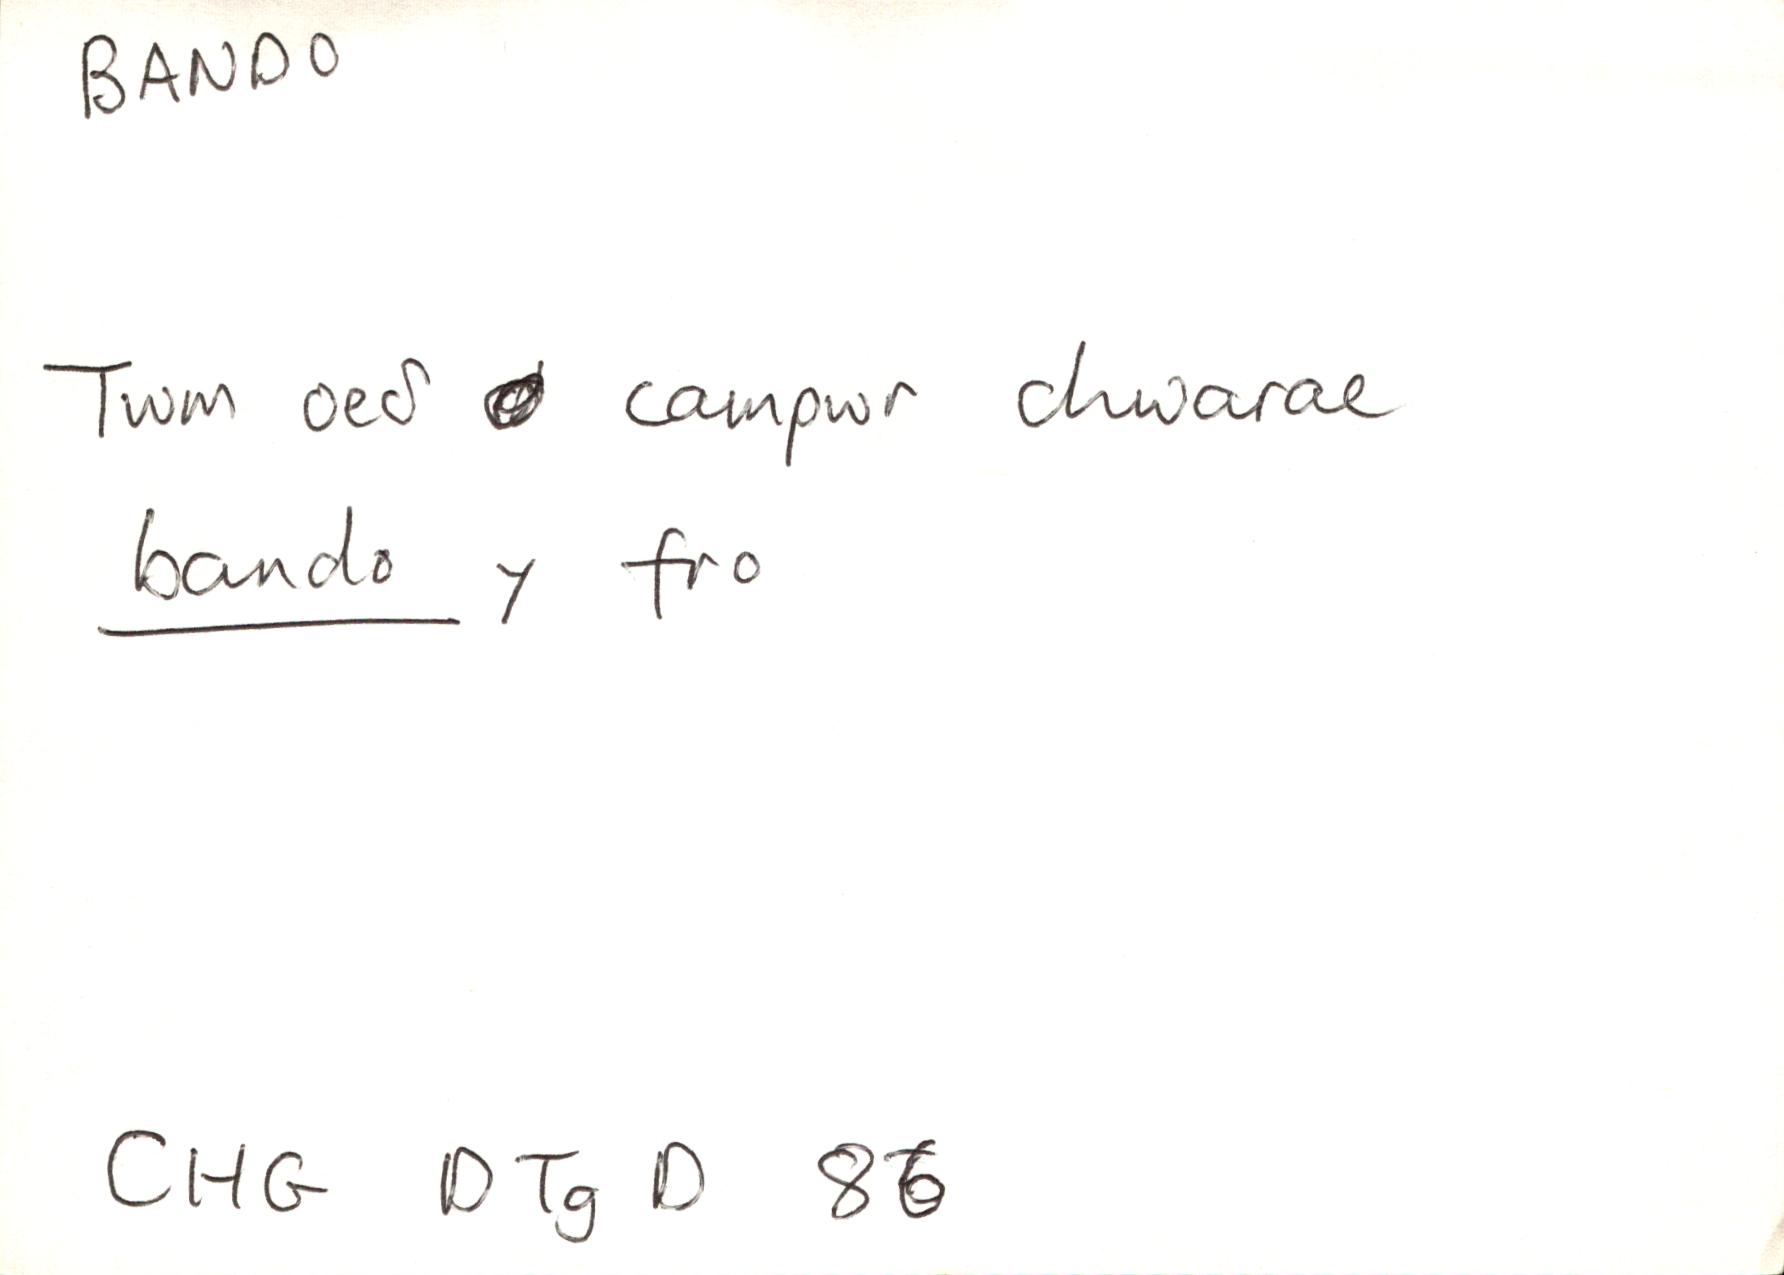 BANDO
Twm oeδ campwr chwarae
bando y fro
CHG DTgD 86